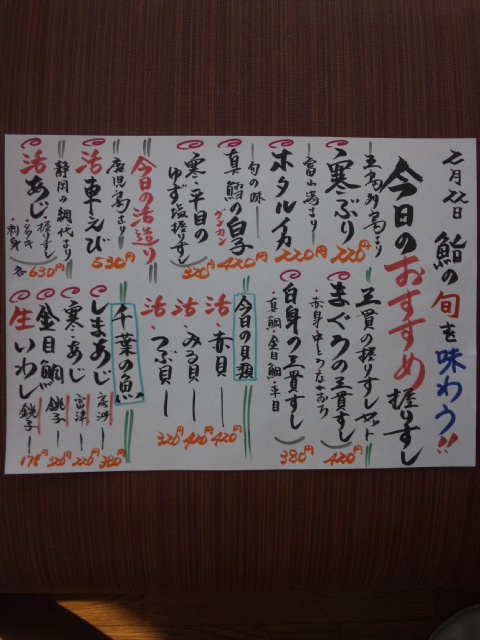 二月二十二日
鮨の旬を味わう!!
今日のおすすめ握りすし
五島列島より
寒ぶり
220円
富山湾より
ホタルイカ
220円
旬の味
真鱈の白子
グンカン
420円
寒平目の
ゆず塩握りすし
320円
今日の活造り
鹿児島より
活車えび
530円
静岡の網代より
活あじ
・握りすし
・タタキ
・刺身
各630円
三貫の握りすしセット
まぐろの三貫すし
・赤身・中とろ・なかおち
420円
白身の三貫すし
・真鯛・金目鯛・平目
380円
今日の貝類
活・赤貝
420円
活・みる貝
420円
活・つぶ貝
320円
千葉の魚
しまあじ
380円
寒・あじ
富津
220円
金目鯛
銚子
320円
生いわし
銚子
178円